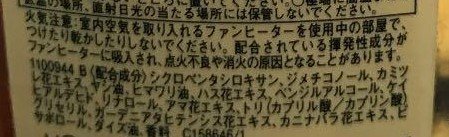 温の場所、直射日光の当たる場所には保管しないでください。
火気注意：室内空気を取り入れるファンヒーターを使用中の部屋で、
つけたり乾かしたりしないでください。配合されている揮発性成分が
ファンヒーターに吸入され、点火不良や消火の原因となることがあります。
1100944 B（成分）シクロペンタシロキサン、ジメチコノール、カミツ
レ花エキス、ヤシ油、ヒマワリ油、ハス花エキス、ベンジルアルコール、ケ
ヒアルデヒド、リナロール、アマ花エキス、トリ（カプリル酸／カプリン酸）
グリセリル、ガーデニアタヒテンシス花エキス、カニナバラ花エキス、ビ
サボロール、ダイズ油、香料 C158646/1